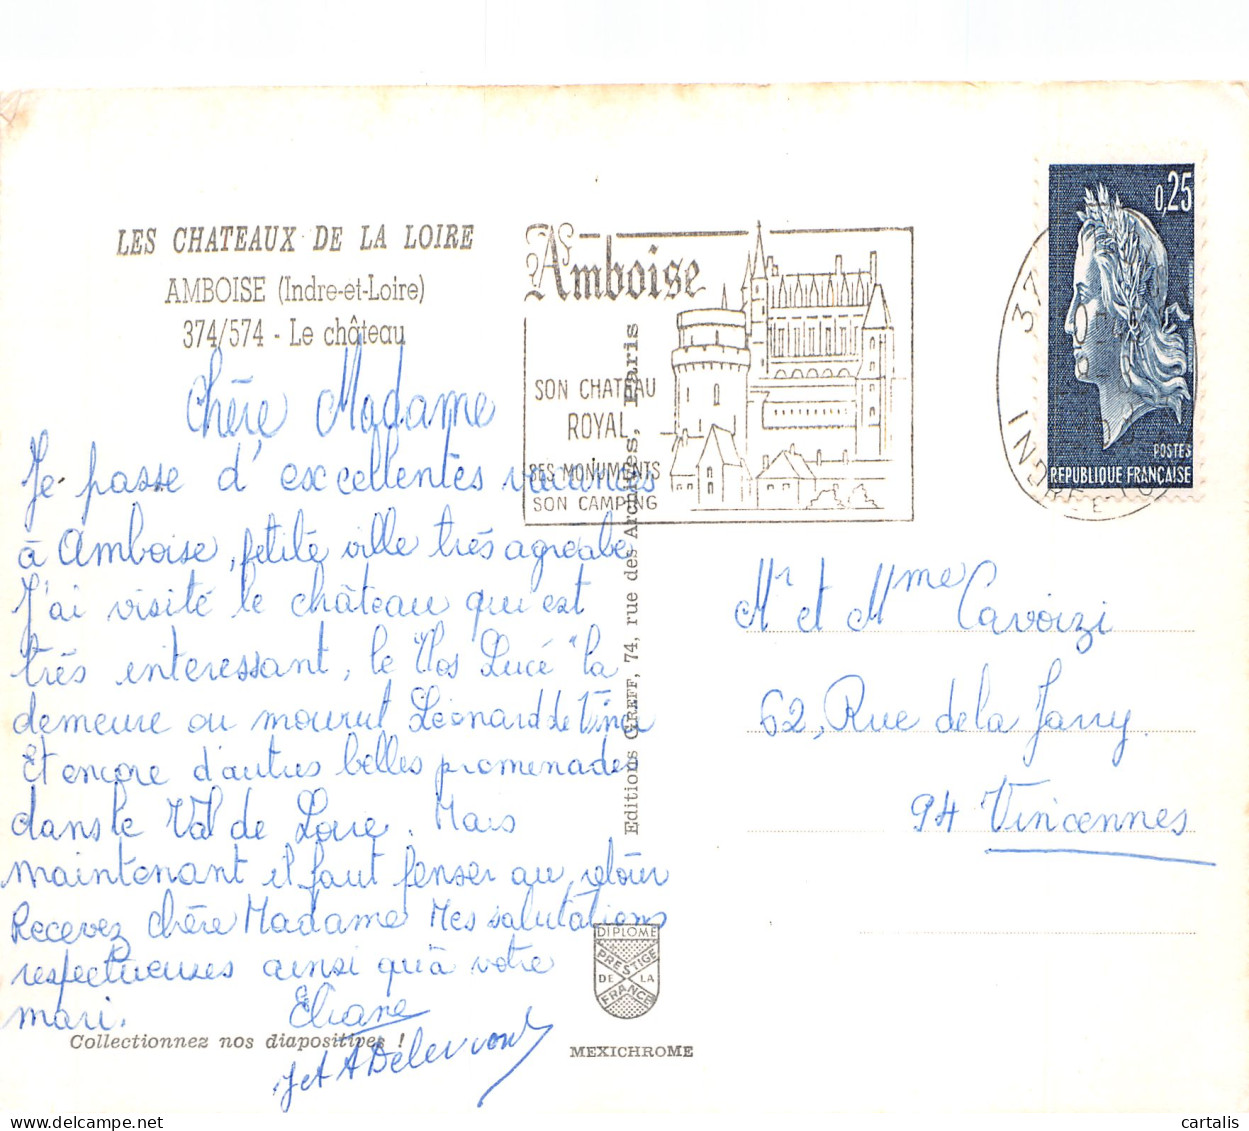 LES CHATEAUX DE LA LOIRE
AMBOISE (Indre-et-Loire)
374/574 - Le château
Chère Madame
Je passe d'excellentes vacances
à Amboise, petite ville très agréable
J'ai visité le château qui est
très interessant, le Clos Lucé "la
demeure ou mourut Léonard de Vinci
Et encore d'autres belles promenades
dans le Val de Loire. Mais
maintenant il faut penser au retour
Recevez chère Madame Mes salutations
respectueuses ainsi qu'à votre
mari.
Eliane
J et A
Collectionnez nos diapositives !
Amboise
SON CHATEAU
ROYAL
SES MONUMENTS
SON CAMPING
Editions GREFF, 74, rue des Archives, Paris
DIPLOME
PRESTIGE
DE LA
FRANCE
MEXICHROME
0,25
POSTES
REPUBLIQUE FRANÇAISE
37
INDRE
Mr et Mme Cavoizi
62, Rue de la Jarry
94 Vincennes
cartalis